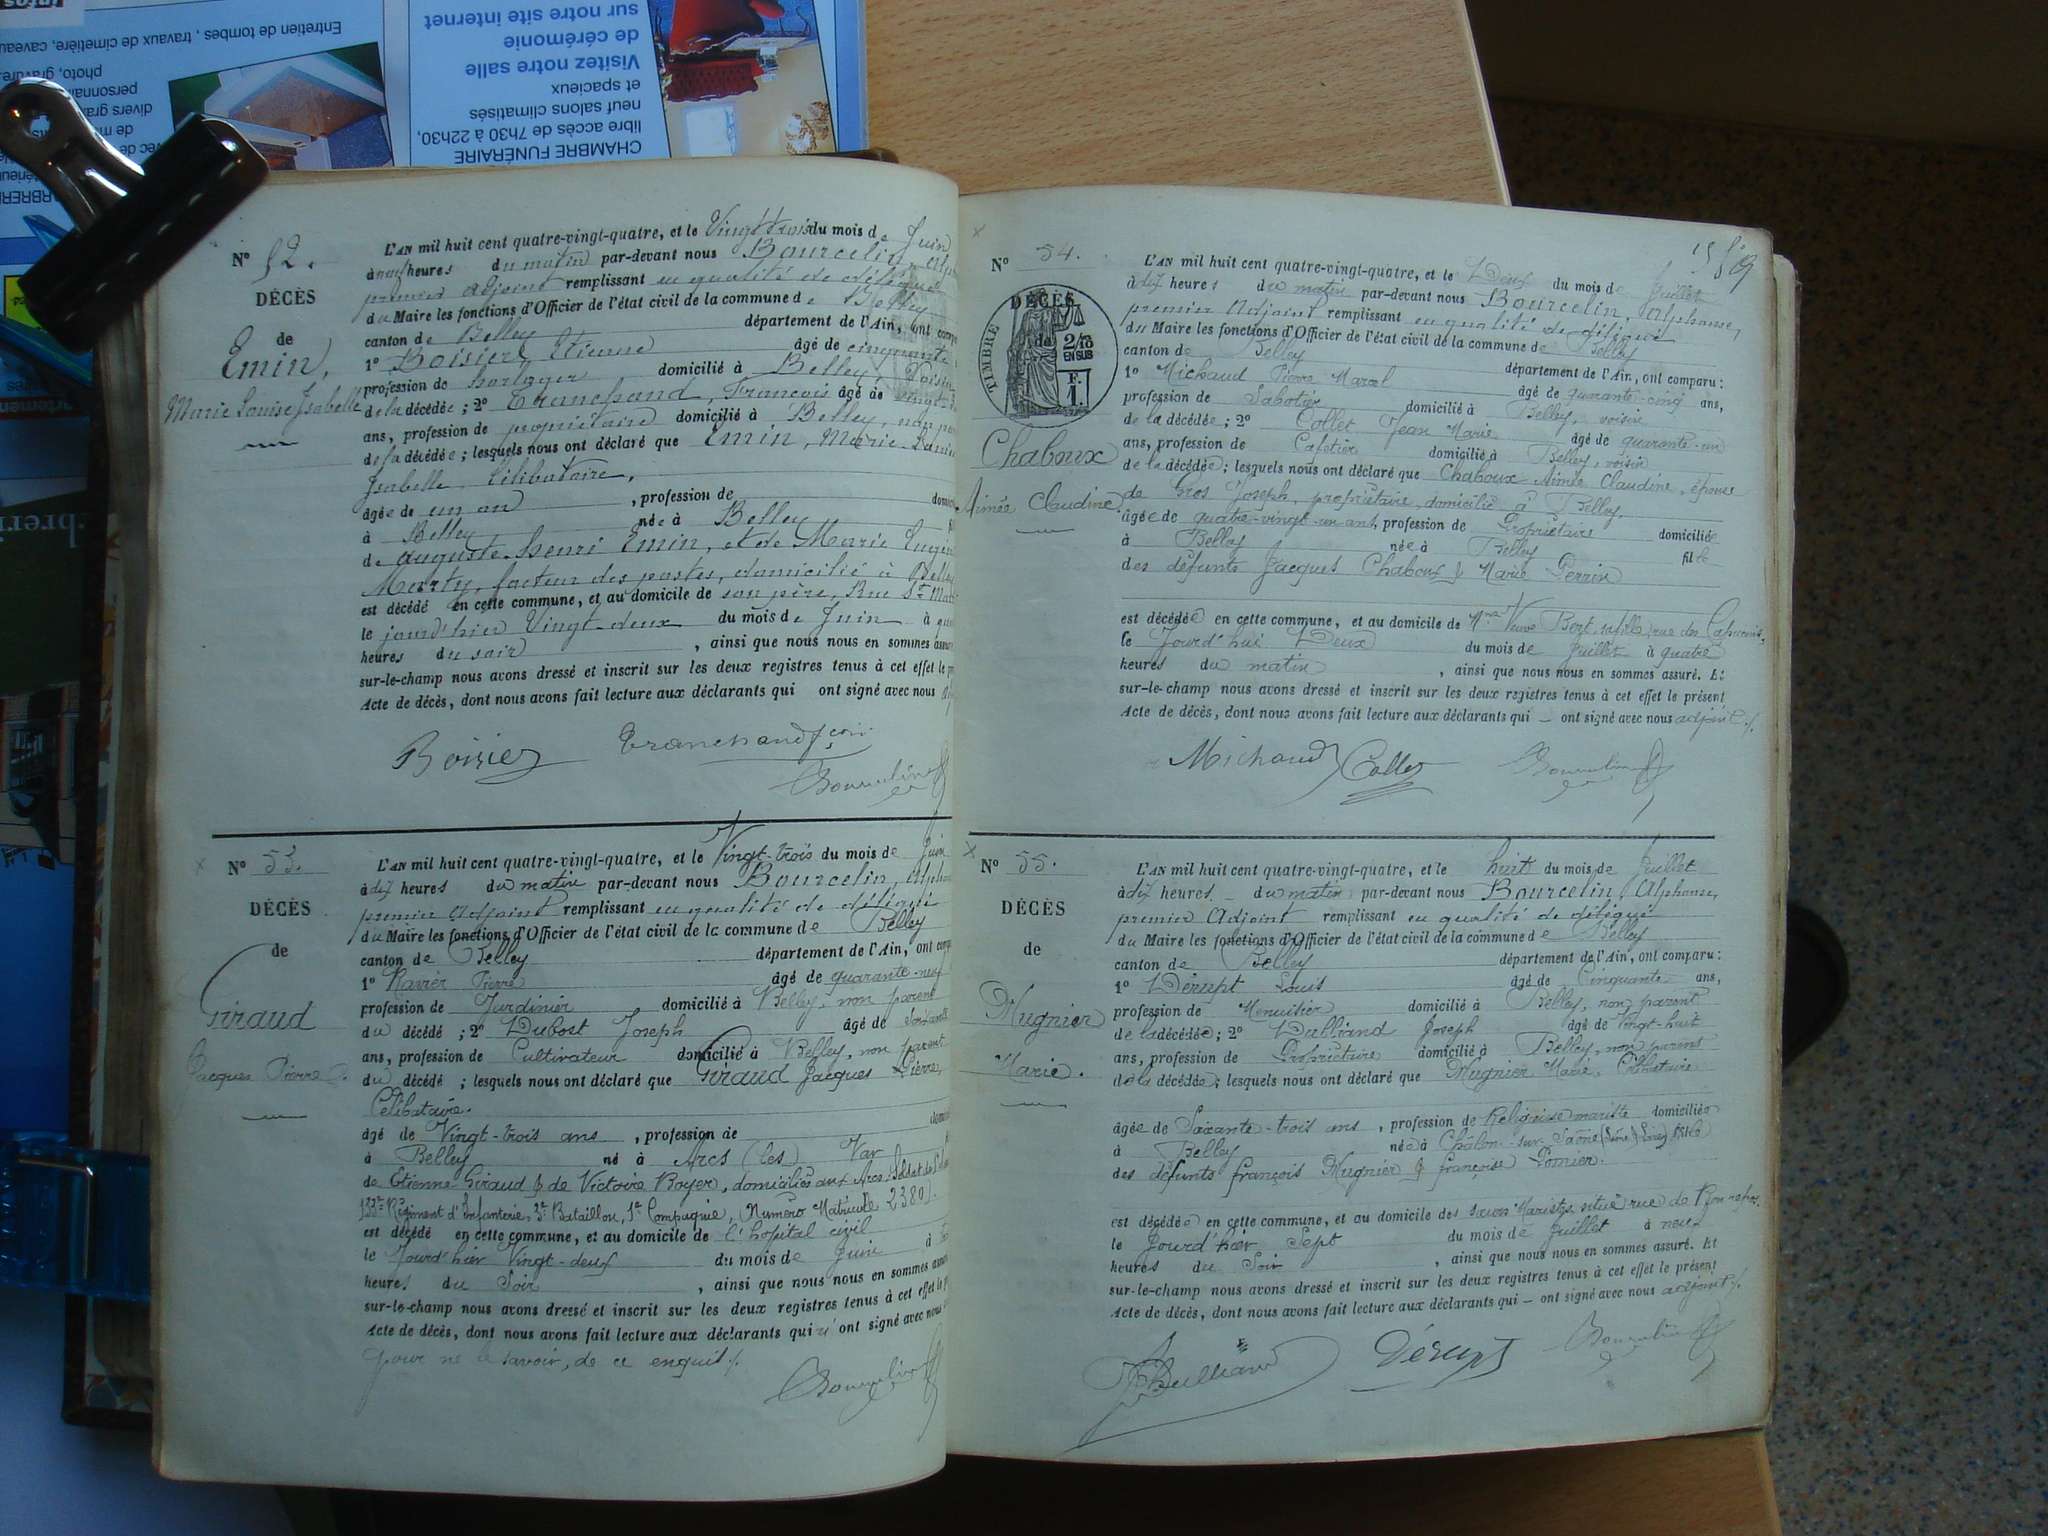 Entretien de tombes, travaux de cimetière, caveau
photo, gravure
personnal
divers gra
CHAMBRE FUNÉRAIRE
libre accès de 7h30 à 22h30,
neuf salons climatisés
et spacieux
Visitez notre salle
de cérémonie
sur notre site internet
N° 52.
DÉCÈS
de
Emin,
Marie Louise Isabelle
L'AN mil huit cent quatre-vingt-quatre, et le Vingt trois du mois de Juin
à neuf heures du matin par-devant nous Bourcelin, Alph
premier adjoint remplissant en qualité de délégué
du Maire les fonctions d'Officier de l'état civil de la commune de Belley
canton de Belley département de l'Ain, ont comp
1° Boisier, Etienne âgé de cinquante
profession de horloger domicilié à Belley, voisin
de la décédée ; 2° Tranchand, François âgé de vingt
ans, profession de propriétaire domicilié à Belley, non par
de la décédée ; lesquels nous ont déclaré que Emin, Marie Louise
Isabelle, Célibataire,
âgée de un an , profession de domi
à Belley née à Belley
de Auguste henri Emin, et de Marie Eugé
Marty, facteur des postes, domicilié à Belley
est décédé en cette commune, et au domicile de son père, Rue St Mar
le jourd'hier Vingt-deux du mois de Juin à qua
heures du soir , ainsi que nous nous en sommes assuré
sur-le-champ nous avons dressé et inscrit sur les deux registres tenus à cet effet le pr
Acte de décès, dont nous avons fait lecture aux déclarants qui ont signé avec nous
Boisier Tranchand fçois
Bourcelin
N° 53.
DÉCÈS
de
Giraud
Jacques Pierre
L'AN mil huit cent quatre-vingt-quatre, et le Vingt-trois du mois de Juin
à dix heures du matin par-devant nous Bourcelin, Alphon
premier Adjoint remplissant en qualité de délégué
du Maire les fonctions d'Officier de l'état civil de la commune de Belley
canton de Belley département de l'Ain, ont comp
1° Ravier Pierre âgé de quarante-neuf
profession de Jardinier domicilié à Belley, non parent
du décédé ; 2° Dubost Joseph âgé de soixante
ans, profession de Cultivateur domicilié à Belley, non parent
du décédé ; lesquels nous ont déclaré que Giraud Jacques Pierre,
Célibataire.
âgé de Vingt-trois ans , profession de domi
à Belley né à Arcs (les) Var
de Etienne Giraud & de Victoire Boyer, domiciliés aux Arcs. Soldat de
133e Régiment d'Infanterie, 3e Bataillon, 1re Compagnie, Numéro Matricule 2380).
est décédé en cette commune, et au domicile de l'hôpital civil
le Jourd'hier Vingt-deux du mois de Juin à
heures du Soir , ainsi que nous nous en sommes assuré
sur-le-champ nous avons dressé et inscrit sur les deux registres tenus à cet effet le
Acte de décès, dont nous avons fait lecture aux déclarants qui n'ont signé avec nous
pour ne le savoir, de ce enquis
Bourcelin
N° 54.
DÉCÈS
de
TIMBRE
2/10
EN SUS
F.
1.
Chaboux
Aimée Claudine
L'AN mil huit cent quatre-vingt-quatre, et le Deux du mois de Juillet
à dix heures du matin par-devant nous Bourcelin, Alphonse,
premier Adjoint remplissant en qualité de délégué
du Maire les fonctions d'Officier de l'état civil de la commune de Belley
canton de Belley département de l'Ain, ont comparu :
1° Michaud Pierre Marcel âgé de quarante-cinq ans,
profession de Sabotier domicilié à Belley, voisin
de la décédée ; 2° Collet Jean Marie âgé de quarante-un
ans, profession de Cafetier domicilié à Belley, voisin
de la décédée ; lesquels nous ont déclaré que Chaboux Aimée Claudine, épouse
de Gros Joseph, propriétaire, domicilié à Belley,
âgée de quatre-vingt-un ans, profession de Propriétaire domiciliée
à Belley née à Belley fille
des défunts Jacques Chaboux & Marie Perrin
est décédée en cette commune, et au domicile de Mme Veuve Bert, sa fille, rue des Capucins,
le Jourd'hui Deux du mois de Juillet à quatre
heures du matin , ainsi que nous nous en sommes assuré. Et
sur-le-champ nous avons dressé et inscrit sur les deux registres tenus à cet effet le présent
Acte de décès, dont nous avons fait lecture aux déclarants qui — ont signé avec nous adjoint
Michaud Collet Bourcelin
N° 55.
DÉCÈS
de
Mugnier
Marie.
L'AN mil huit cent quatre-vingt-quatre, et le huit du mois de Juillet
à dix heures du matin par-devant nous Bourcelin, Alphonse,
premier Adjoint remplissant en qualité de délégué
du Maire les fonctions d'Officier de l'état civil de la commune de Belley
canton de Belley département de l'Ain, ont comparu :
1° Dérupt Louis âgé de Cinquante ans,
profession de Menuisier domicilié à Belley, non parent
de la décédée ; 2° Bulliand Joseph âgé de Vingt-huit
ans, profession de Propriétaire domicilié à Belley, non parent
de la décédée ; lesquels nous ont déclaré que Mugnier Marie, Célibataire
âgée de Soixante-trois ans , profession de Religieuse mariste domiciliée
à Belley née à Châlon-sur-Saône (Saône & Loire) fille
des défunts François Mugnier & Françoise Pomier.
est décédée en cette commune, et au domicile des sœurs Maristes, situé rue de Bon repos.
le Jourd'hier Sept du mois de Juillet à neuf
heures du Soir , ainsi que nous nous en sommes assuré. Et
sur-le-champ nous avons dressé et inscrit sur les deux registres tenus à cet effet le présent
Acte de décès, dont nous avons fait lecture aux déclarants qui — ont signé avec nous adjoint
Bulliand Dérupt Bourcelin